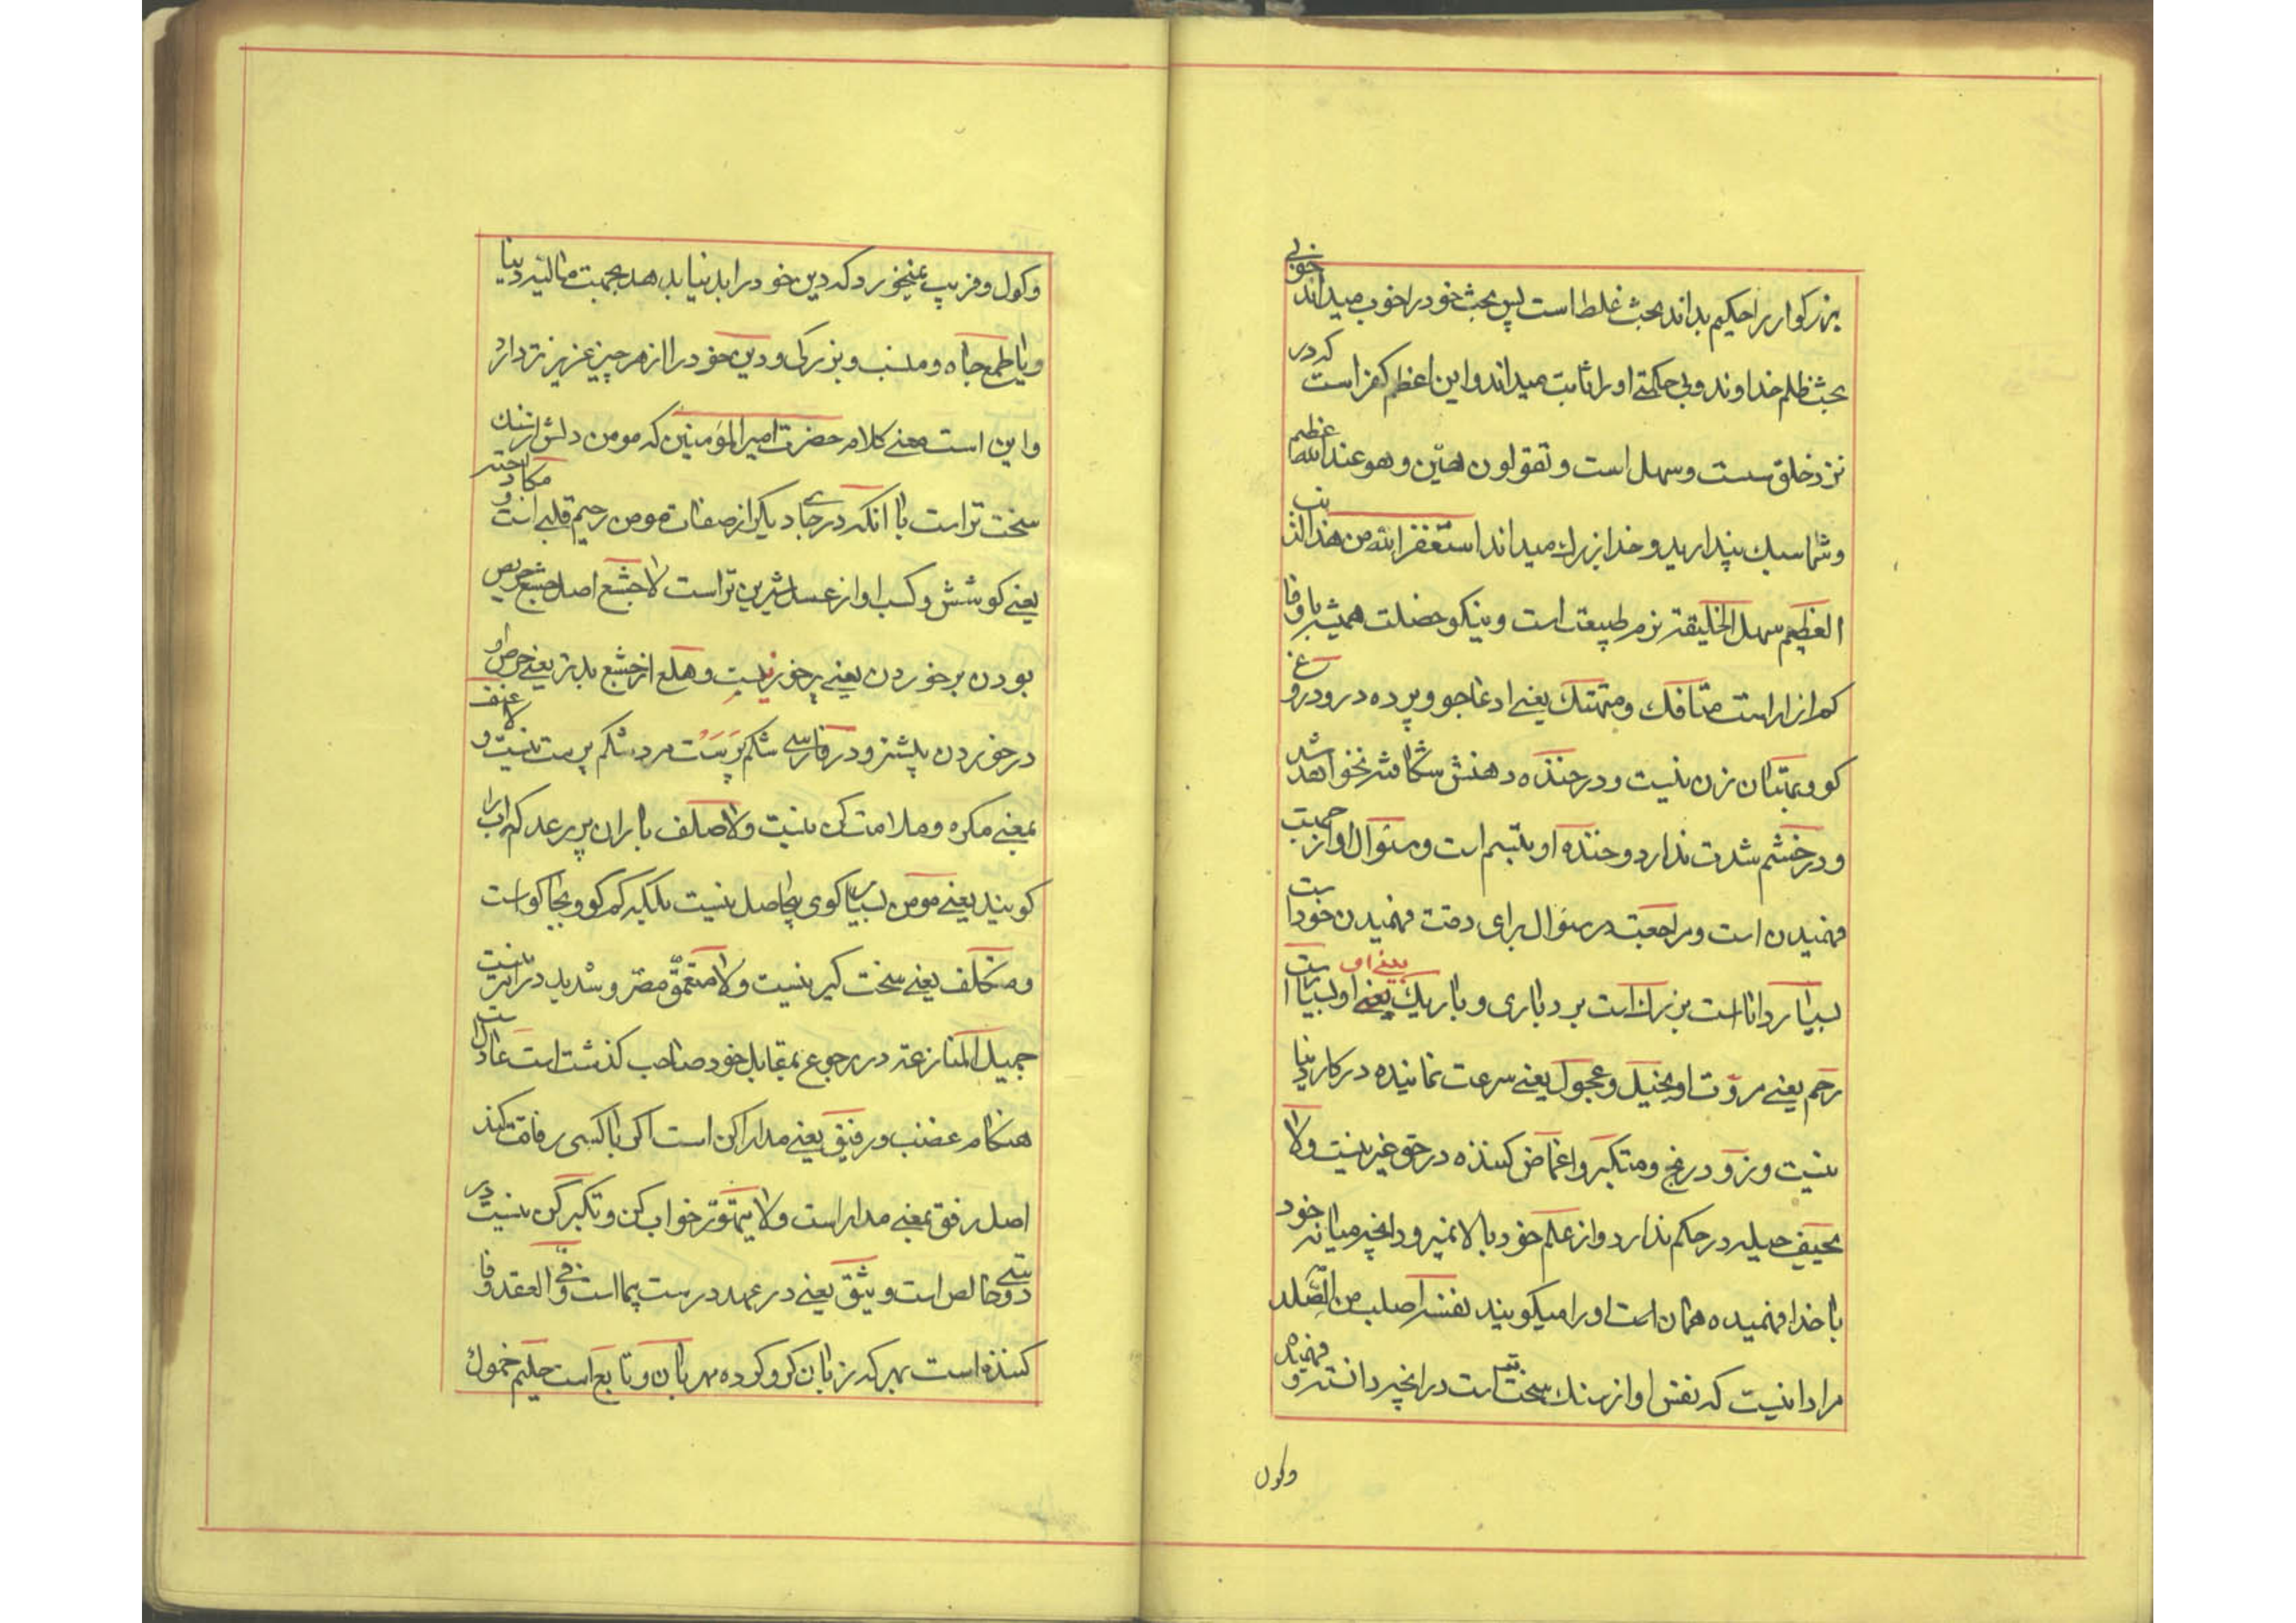 بزرکوار را حکیم بداند بحث غلط است پس بحث خود را خوب میداند خوبی
بحث ظلم خداوند و بی حکمتی او را ثابت میداند و این اعظم کفر است که در
نزد خلق سست و سهل است و تقولون هیّن و هو عند الله عظیم
و شما سبك پندارید و خدا بزرك میداند استغفر الله من هذا الذنب
العظیم سهل الخلیقة نرم طبیعت است و نیکو خصلت همیشه با وفا
کم ازار است متافك و متهتك یعنی ادعا جو و پرده در و دروغ
کو و بهتان زن نیست و در خنده دهنش شکافته نخواهد شد
و در خشم شدت ندارد و خنده او تبسم است و سئوال او از جهت
فهمیدن است و مراجعت در سئوال برای دقت فهمیدن خود است
بسیار دانا است بزرك است بردباری و باریك یعنی او بسیار است
رحم یعنی مروّت او بخیل و عجول یعنی سرعت نماینده در کار دنیا
نیست و زود رنج و متکبر و اغماض کننده در حق غیر نیست ولا
یحیف حیله در حکم ندارد و از علم خود بالا نمیرود انچه میانه خود
با خدا فهمیده همان است او را میکویند نفسه اصلب من الصّلد
مراد انیست که نفس او از سنك سخت تر است در انچه دانسته و فهمیده
وکول
وکول و فریب نمیخورد که دین خود را بدنیا بدهد بجهت مالیه دنیا
و یا طمع جاه و منسب و بزرکی و دین خود را از هر چیز عزیز تر دارد
و این است معنی کلام حضرت امیر المؤمنین که مومن دلش از سنك
سخت تر است با انکه در جای دیکر از صفات مومن رحیم قلبی است و مکادحته
یعنی کوشش و کسب او از عسل شیرین تر است لا جشع اصل جشع حریص
بودن بر خوردن یعنی پرخور نیست و هلع از جشع بدتر یعنی حرص او
در خوردن بیشتر و در فارسی شکم پرست مرد شکم پرست نیست و لا عنف
بمعنی مکره و ملامت کن نیست ولا صلف باران پر رعد کم اب را
کویند یعنی مومن بسیار کوی بیحاصل نیست بلکه کم کو و بجا کو است
و متکلف یعنی سخت کیر نیست ولا متعمّق مضر و شدید در اثر نیست
جمیل المنازعة در رجوع بمقابل خود صاحب کذشت است عادل است
هنکام غضب و رفیق یعنی مدارا کن است اکر با کسی رفاقت کند
اصل رفق بمعنی مدارا است ولا یتهوّر خواب کن و تکبر کن نیست در
دوستی خالص است و یثق یعنی در عهد درست پیما است و فی العقد وفا
کننده است بهر که زبان کرو کرده مهربان و تابع است حلیم خمول